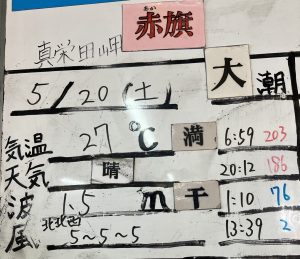 赤旗
あか
真栄田岬
5/20(土) 大潮
気温 27℃ 満 6:59 203
天気 晴 20:12 186
波 1.5m 干 1:10 76
風 北北西 5~5~5 13:39 2